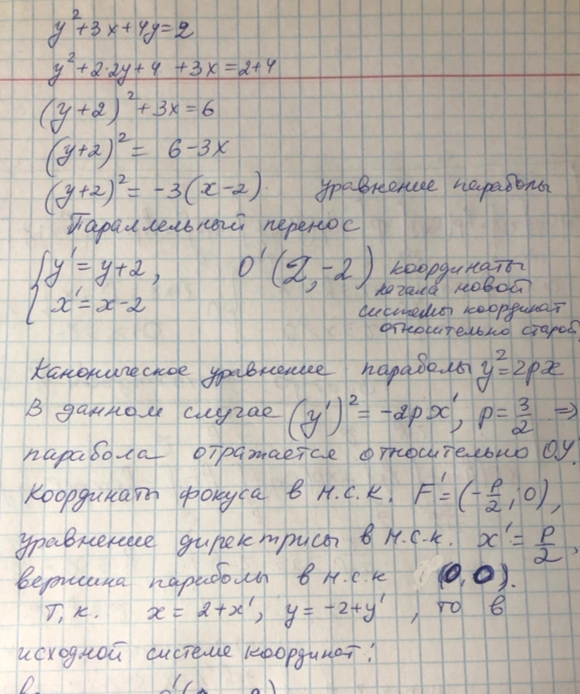 y²+3x+4y=2
y²+2·2y+4 +3x=2+4
(y+2)²+3x=6
(y+2)²= 6-3x
(y+2)²= -3(x-2) уравнение параболы
Параллельный перенос
{ y'=y+2, O'(2,-2) координаты
x'=x-2 начала новой
системы координат
относительно старой
Каноническое уравнение параболы y²=2px
В данном случае (y')²=-2px', p=3/2 ⇒
парабола отражается относительно OY.
Координаты фокуса в н.с.к. F'=(-p/2;0),
уравнение директрисы в н.с.к. x'=p/2,
вершина параболы в н.с.к (0,0).
Т.к. x=2+x', y=-2+y', то в
исходной системе координат: